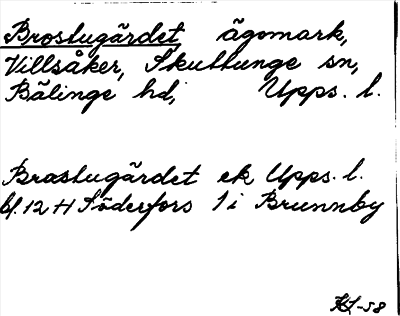 Brostugärdet, ägomark,
Villsåker, Skuttunge sn,
Bälinge hd, Upps. l.
Brostugärdet ek Upps. l.
bl. 12 H Söderfors 1 i Brunnby
KL-58